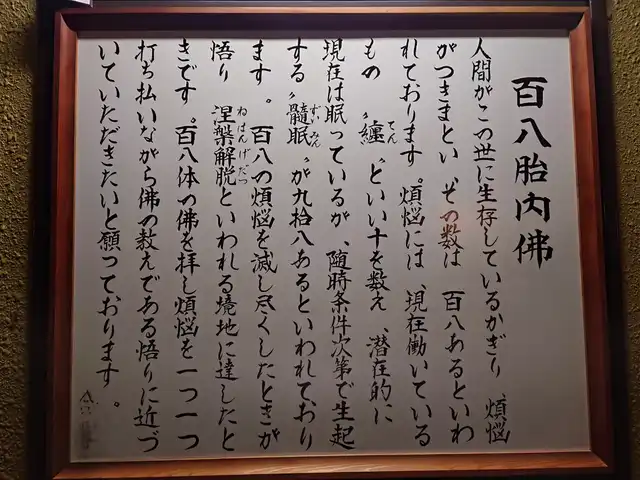 百八胎内佛
人間がこの世に生存しているかぎり、煩悩
がつきまとい、その数は 百八あるといわ
れております。煩悩には、現在働いている
もの〝纏〟といい十を数え、潜在的に
現在は眠っているが、随時条件次第で生起
する〝髓眠〟が九拾八あるといわれており
ます。百八の煩悩を滅し尽くしたときが
悟り 涅槃解脱といわれる境地に達したと
きです。百八体の佛を拝し煩悩を一つ一つ
打ち払いながら佛の教えである悟りに近づ
いていただきたいと願っております。